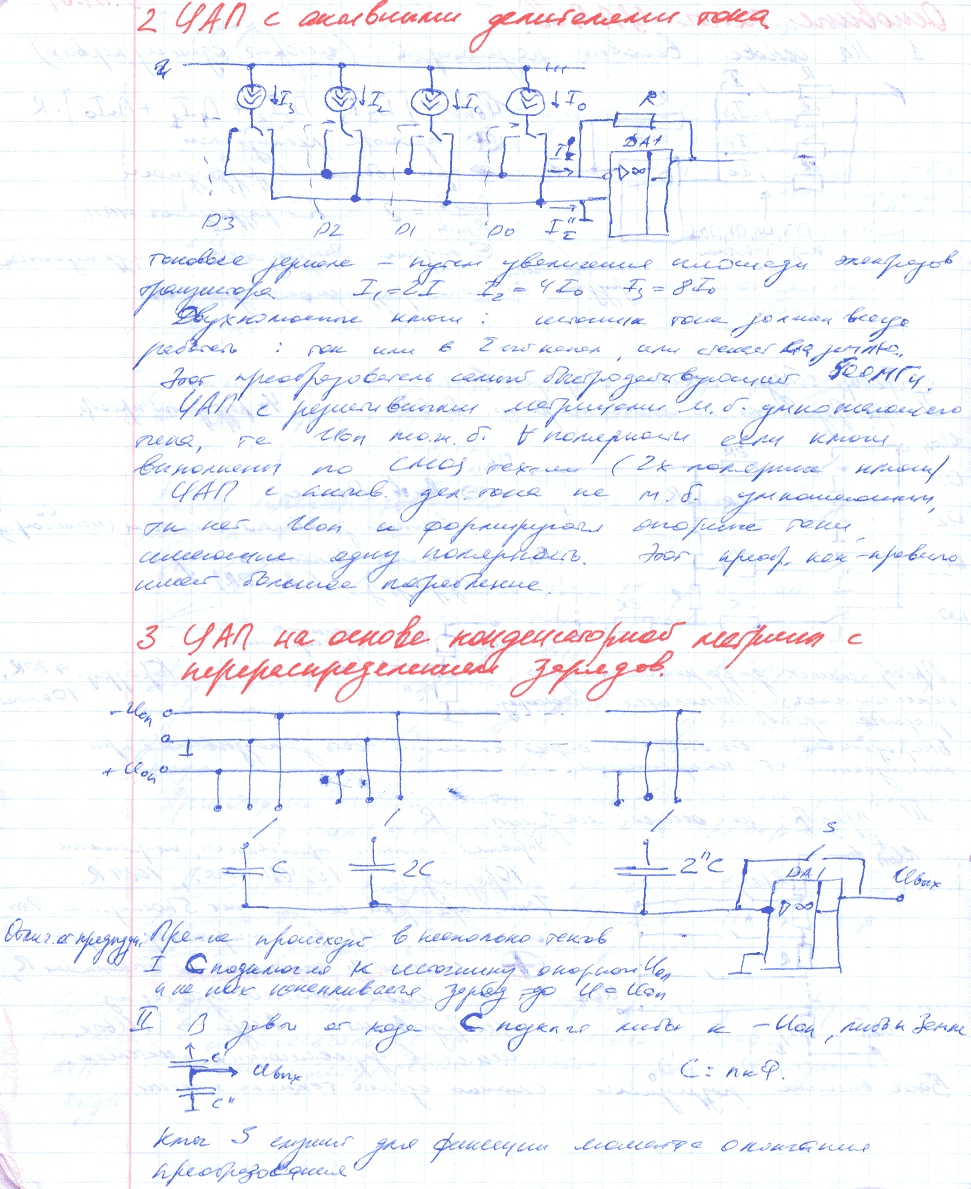 2 ЦАП с активными делителями тока
I3 I2 I1 I0 R
DA1
I'Σ
▷∞
I"Σ
D3 D2 D1 D0
токовое зеркало – путём увеличения площади электродов
транзистора I1=2I I2=4I0 I3=8I0
Двухполюсные ключи: источник тока должен всегда
работать: ток или в Σ сигналов, или стекает на землю.
Этот преобразователь самый быстродействующий 500МГц.
ЦАП с резистивными матрицами м.б. умножающего
типа, тк Uоп мож. б. ∀ полярности если ключи
выполнены по CMOS техн (2х полярные ключи)
ЦАП с актив. дел тока не м.б. умножающим,
тк нет Uоп и формируются опорные токи,
имеющие одну полярность. Этот преоб. как-правило
имеет большое потребление.
3 ЦАП на основе конденсаторной матрицы с
перераспределением зарядов.
- Uоп
+ Uоп
C 2C 2ⁿC S
DA1 Uвых
▷∞
Отлич. от предыдущ. Пре-ие происходит в несколько тактов
I C подключая к источнику опорной Uоп
и на них накапливается заряд до U=Uоп
II В завис от кода C подключ либо к -Uоп, либо к Земле
C' Uвых C= пкФ.
C"
Ключ S служит для фиксации момента окончания
преобразования